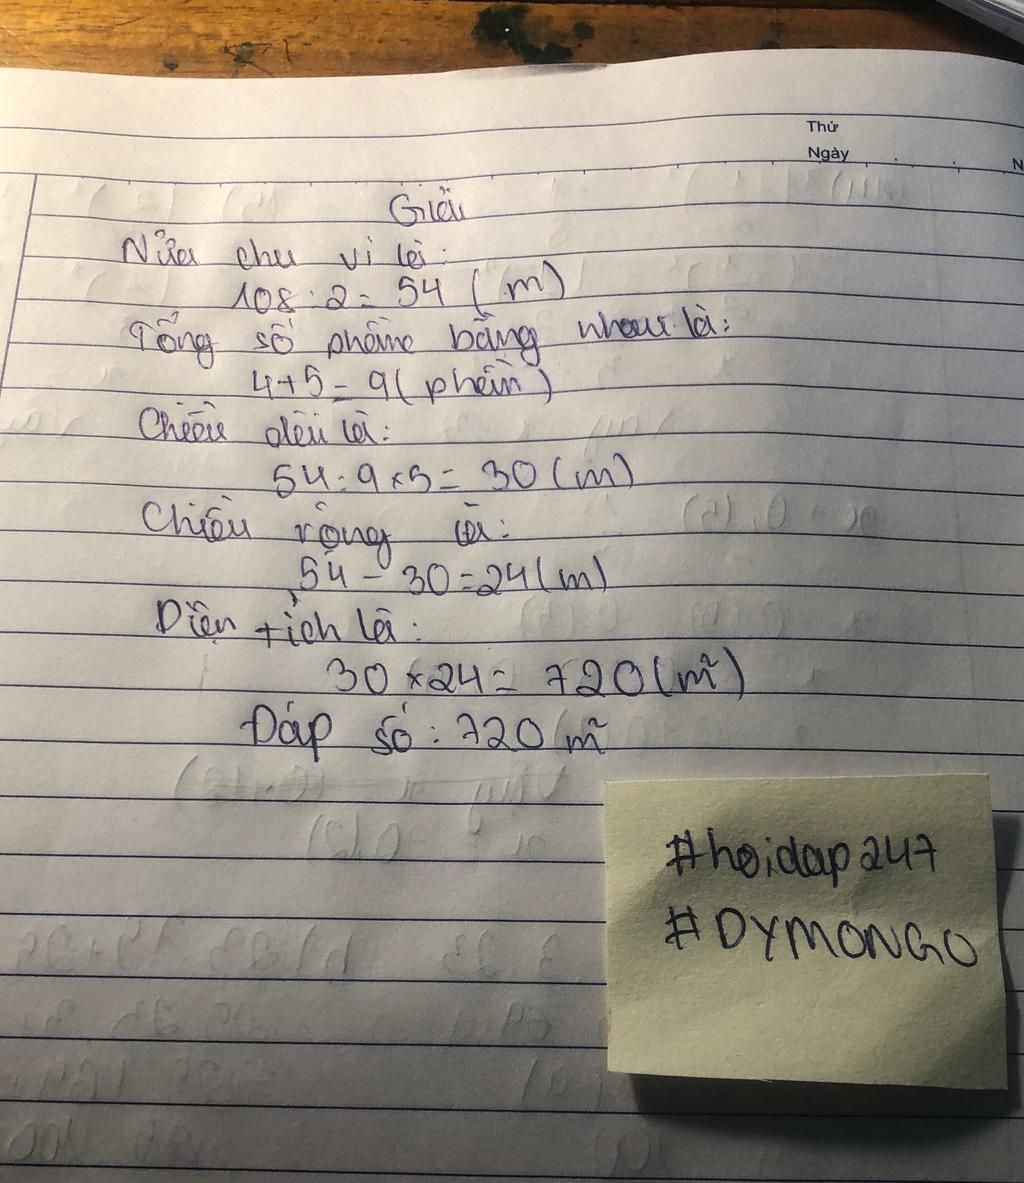 Thứ
Ngày
N
Giải
Nửa chu vi là:
108 : 2 = 54 (m)
Tổng số phần bằng nhau là:
4+5 = 9 (phần)
Chiều dài là:
54 : 9 x 5 = 30 (m)
Chiều rộng là:
54 - 30 = 24 (m)
Diện tích là:
30 x 24 = 720 (m²)
Đáp số : 720 m²
#hoidap247
#DYMONGO